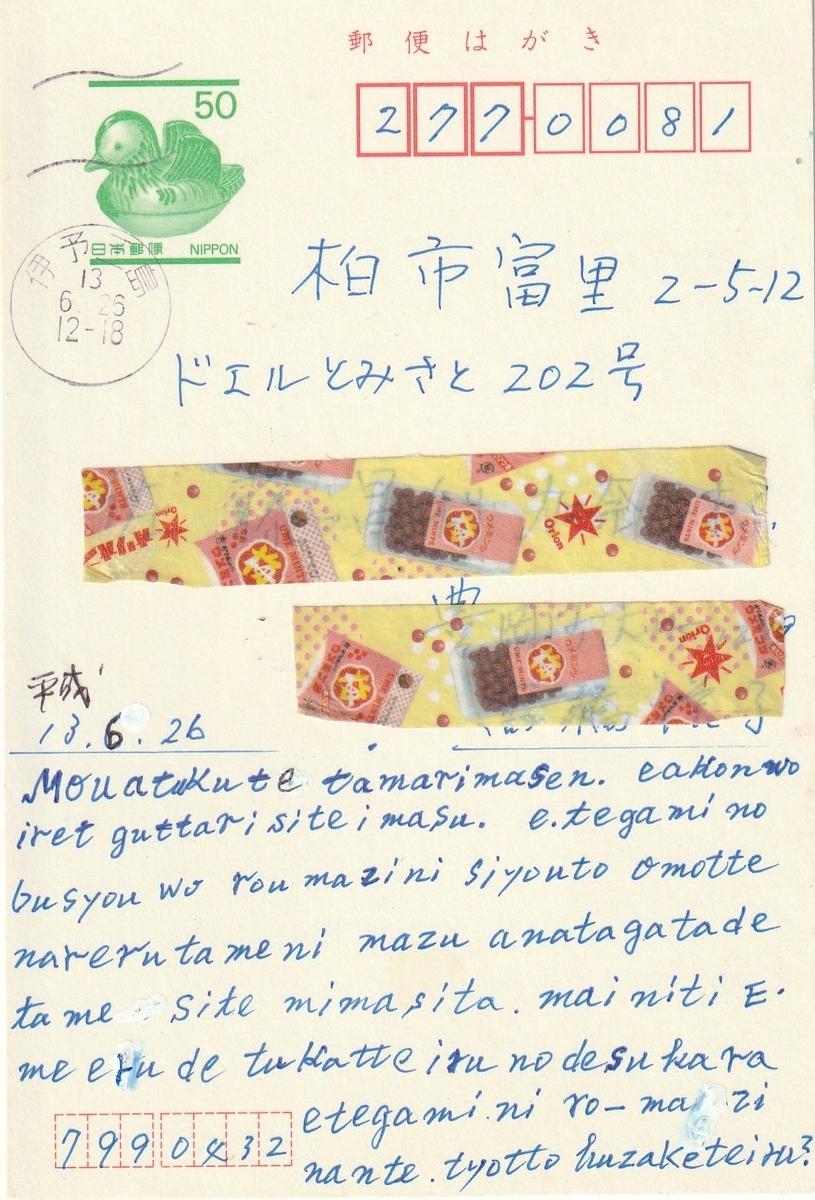 郵便はがき
50
日本郵便 NIPPON
2770081
伊予三島
13
6 26
12-18
柏市富里 2-5-12
ドエルとみさと 202号
Orion
Orion
Orion
平成
13.6.26
Mouatukute tamarimasen. eakonwo
iret guttari site imasu. e.tegami no
busyou wo rou mazini siyouto omotte
narerutameni mazu anatagatade
tame site mimasita. mainiti E.
meeru de tukatteiru nodesukara
etegami.ni ro-mazi
nante. tyotto huzaketeiru?
7990432